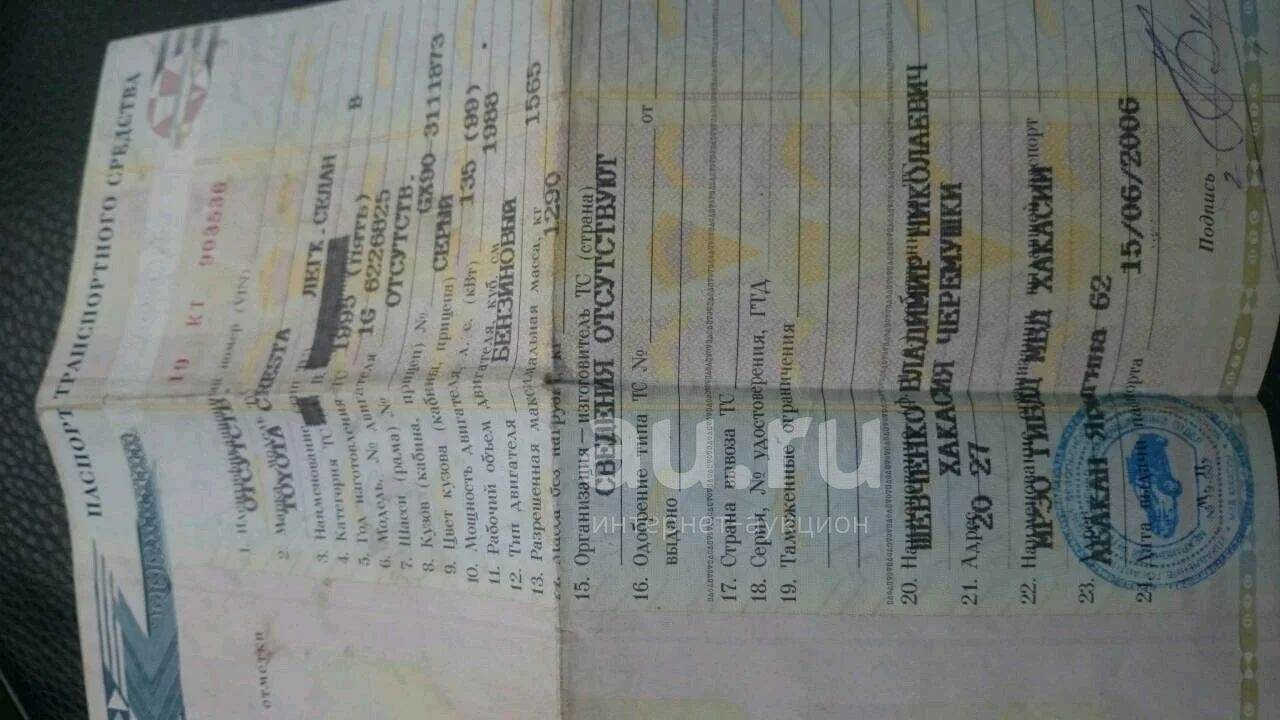 ПАСПОРТ ТРАНСПОРТНОГО СРЕДСТВА
19 КТ 903536
1. номер (VIN) ОТСУТСТВ.
2. TOYOTA CRESTA
3. Наименование ЛЕГК. СЕДАН
4. Категория ТС B
5. Год изготовления ТС 1995 (ПЯТЬ)
6. Модель, № двигателя 1G 6226825
7. Шасси (рама) № ОТСУТСТВ.
8. Кузов (кабина, прицеп) № GX90-3111873
9. Цвет кузова (кабины, прицепа) СЕРЫЙ
10. Мощность двигателя, л. с. (кВт) 135 (99)
11. Рабочий объем двигателя, куб. см 1988
12. Тип двигателя БЕНЗИНОВЫЙ
13. Разрешенная максимальная масса, кг 1565
Масса без нагрузки, кг 1290
15. Организация – изготовитель ТС (страна)
СВЕДЕНИЯ ОТСУТСТВУЮТ
16. Одобрение типа ТС № от
выдано
17. Страна вывоза ТС
18. Серия, № удостоверения, ГТД
19. Таможенные ограничения
20. ШЕВЧЕНКО ВЛАДИМИР НИКОЛАЕВИЧ
ХАКАСИЯ ЧЕРЕМУШКИ
21. Адрес 20 27
22. МРЭО ГИБДД МВД ХАКАСИИ
23. АБАКАН ЯРЫГИНА 62
24. Дата выдачи паспорта 15/06/2006
М. П.
Подпись
отметки
au.ru
интернет-аукцион